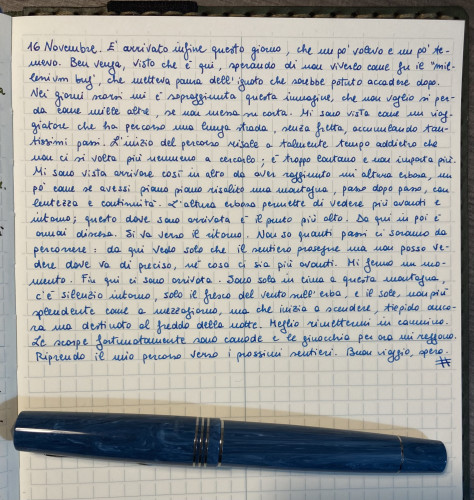 16 Novembre. E' arrivato infine questo giorno, che un po' volevo e un po' te-
mevo. Ben venga, visto che è qui, sperando di non viverlo come fu il "mil-
lenium bug", che metteva paura dell'ignoto che sarebbe potuto accadere dopo.
Nei giorni scorsi mi è sopraggiunta questa immagine, che non voglio si per-
da come mille altre, se non messa su carta. Mi sono vista come un viag-
giatore che ha percorso una lunga strada, senza fretta, accumulando tan-
tissimi passi. L'inizio del percorso risale a talmente tempo addietro che
non ci si volta più nemmeno a cercarlo; è troppo lontano e non importa più.
Mi sono vista arrivare così in alto da aver raggiunto un'altura erbosa, un
po' come se avessi piano piano risalito una montagna, passo dopo passo, con
lentezza e continuità. L'altura erbosa permette di vedere più avanti e
intorno; questo dove sono arrivata è il punto più alto. Da qui in poi è
ormai discesa. Si va verso il ritorno. Non so quanti passi ci saranno da
percorrere: da qui vedo solo che il sentiero prosegue ma non posso ve-
dere dove va di preciso, né cosa ci sia più avanti. Mi fermo un mo-
mento. Fin qui ci sono arrivata. Sono solo in cima a questa montagna,
c'è silenzio intorno, solo il fresco del vento sull'erba, e il sole, non più
splendente come a mezzogiorno, ma che inizia a scendere, tiepido anco-
ra ma destinato al freddo della notte. Meglio rimettermi in cammino.
Le scarpe fortunatamente sono comode e le ginocchia per ora mi reggono.
Riprendo il mio percorso verso i prossimi sentieri. Buon viaggio, spero.
#